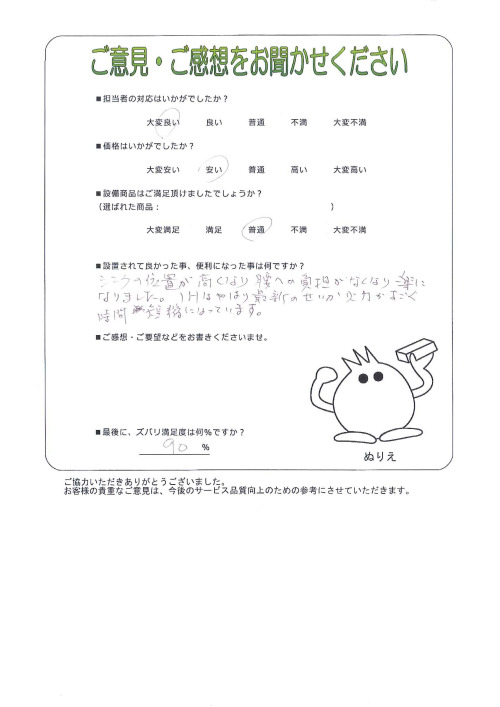 ご意見・ご感想をお聞かせください
■担当者の対応はいかがでしたか？
大変良い 良い 普通 不満 大変不満
■価格はいかがでしたか？
大変安い 安い 普通 高い 大変高い
■設備商品はご満足頂けましたでしょうか？
（選ばれた商品： ）
大変満足 満足 普通 不満 大変不満
■設置されて良かった事、便利になった事は何ですか？
シンクの位置が高くなり腰への負担がなくなり楽に
なりました。IHはやはり最新のせいか火力がすごく
時間短縮になっています。
■ご感想・ご要望などをお書きくださいませ。
■最後に、ズバリ満足度は何％ですか？
90 ％
ぬりえ
ご協力いただきありがとうございました。
お客様の貴重なご意見は、今後のサービス品質向上のための参考にさせていただきます。